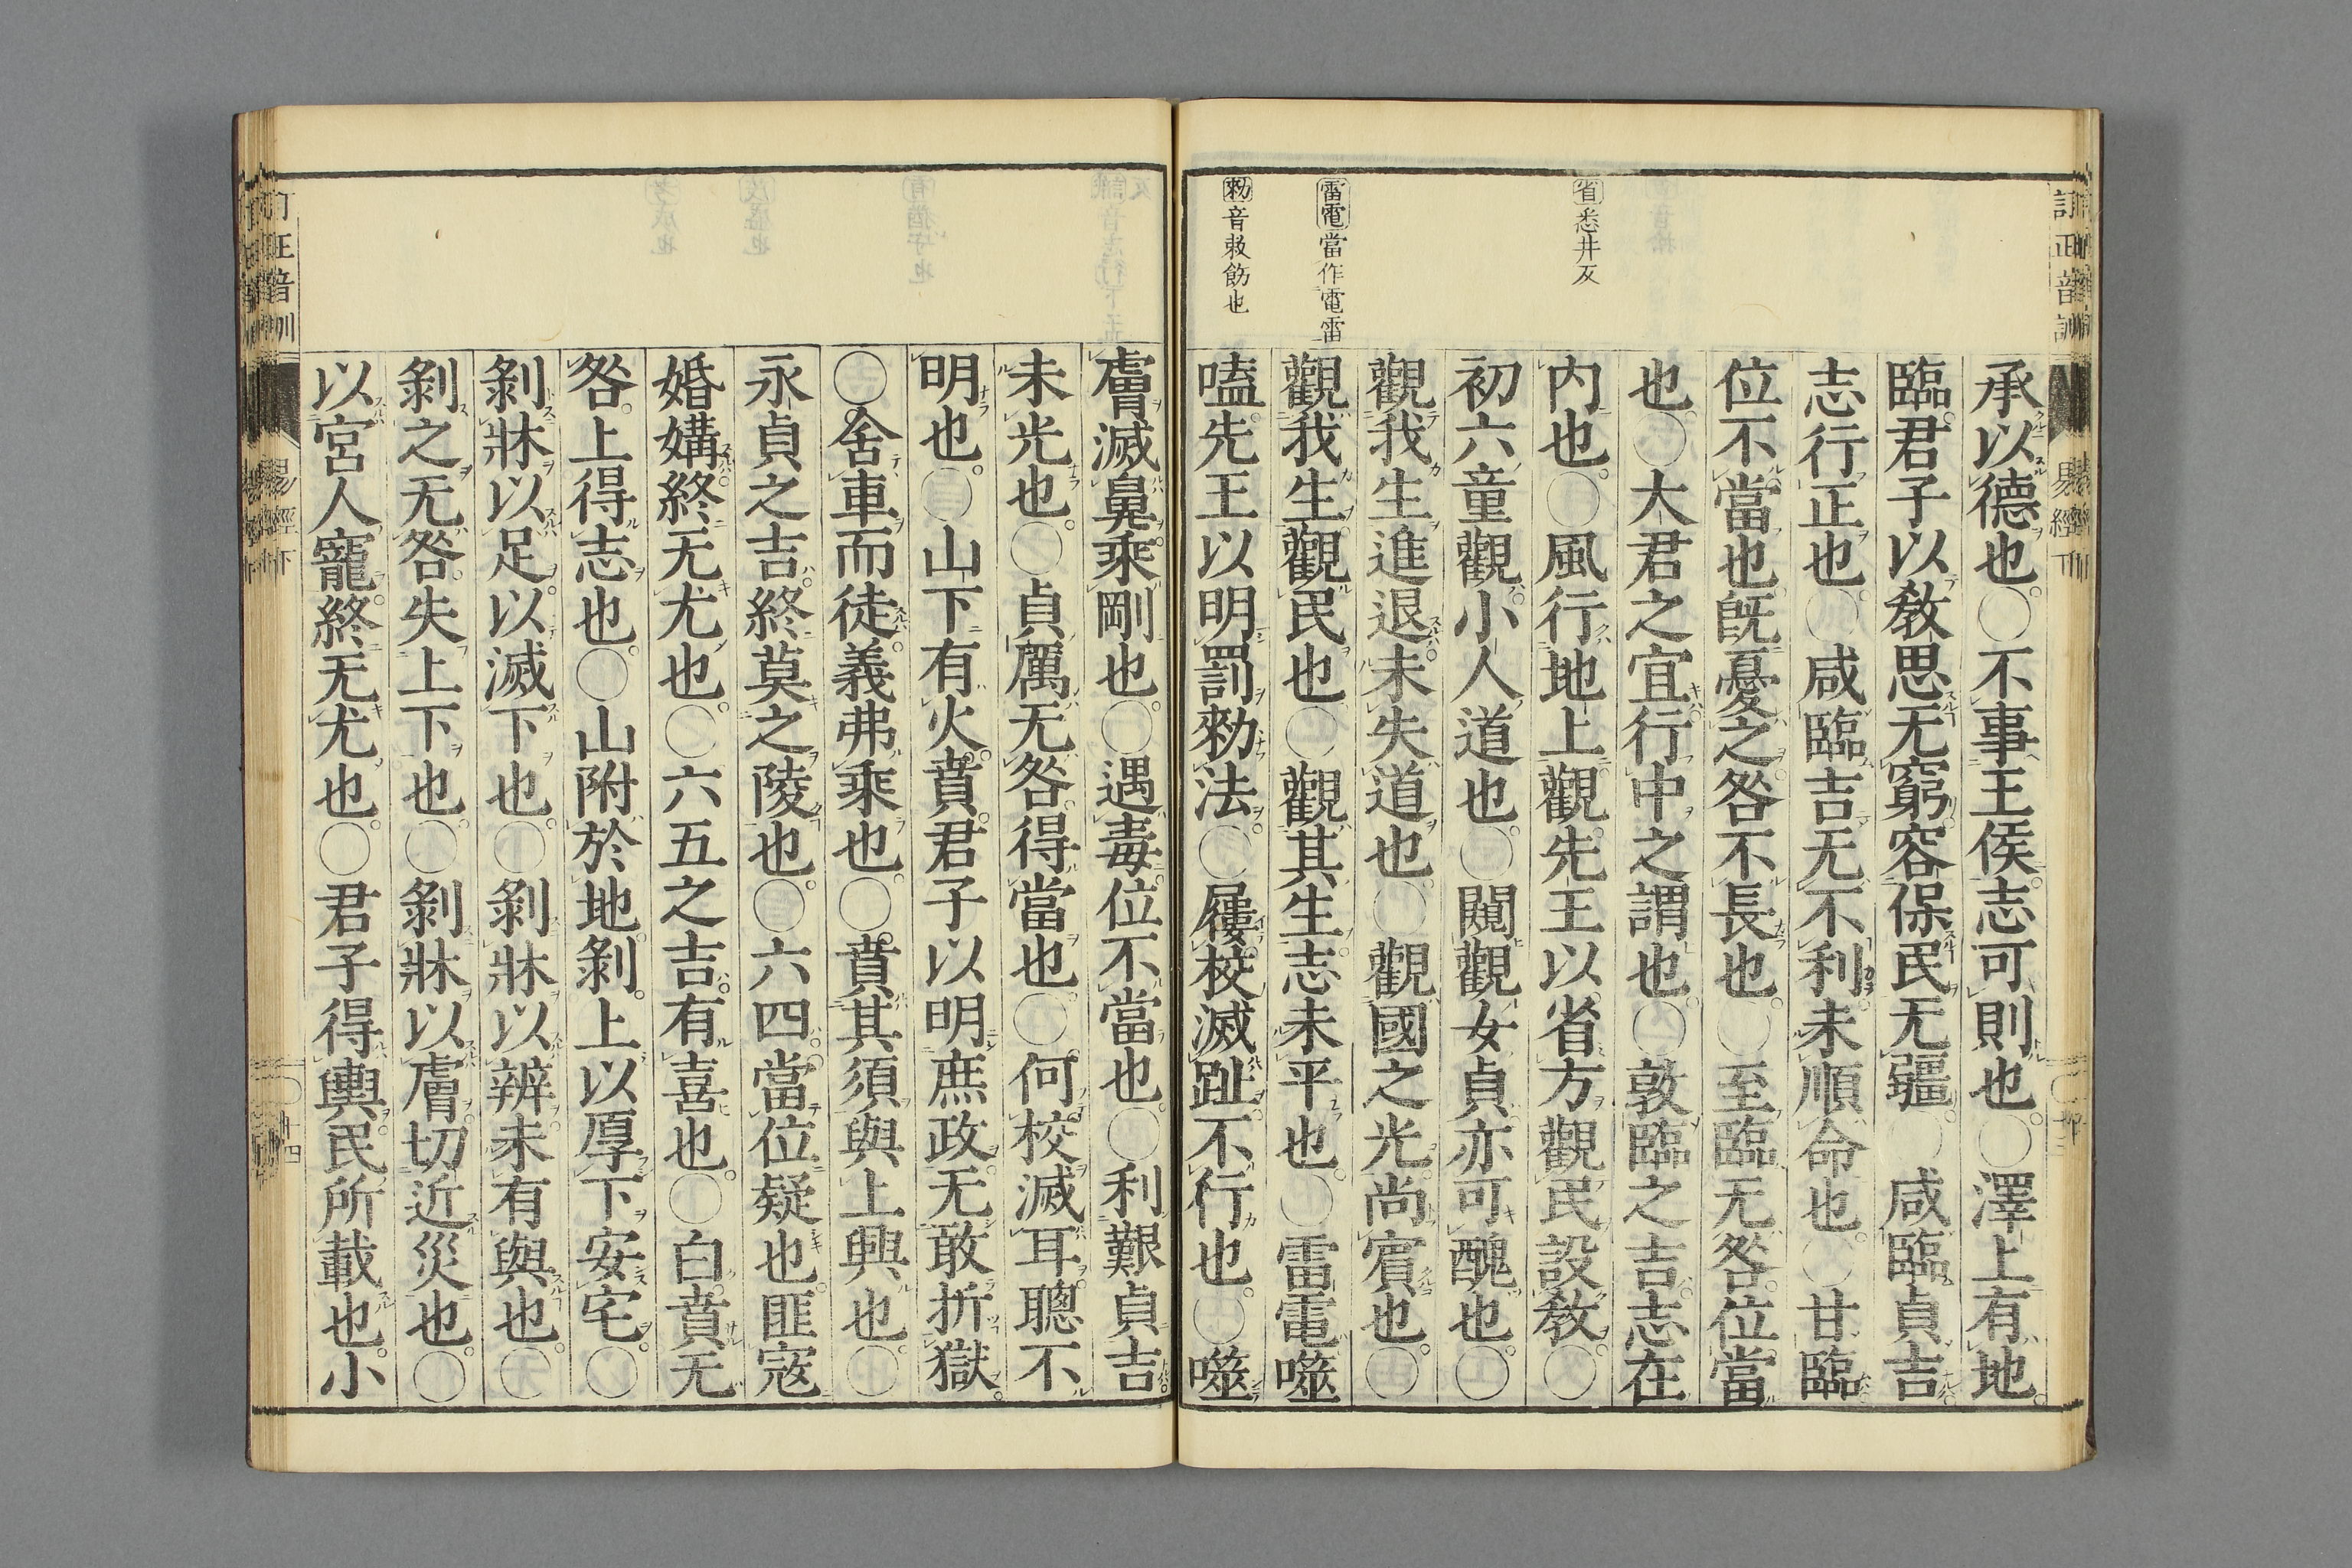 承以德也○不事王侯志可則也○澤上有地
臨君子以敎思无窮容保民无疆○咸臨貞吉
志行正也○咸臨吉无不利未順命也○甘臨
位不當也旣憂之咎不長也○至臨无咎位當
也○大君之宜行中之謂也○敦臨之吉志在
内也○風行地上觀先王以省方觀民設敎○
初六童觀小人道也○闚觀女貞亦可醜也○
觀我生進退未失道也○觀國之光尚賓也○
觀我生觀民也○觀其生志未平也○雷電噬
嗑先王以明罰勑法○屨校滅趾不行也○噬
省悉井反
雷電當作電雷
勑音敕飭也
膚滅鼻乘剛也○遇毒位不當也○利艱貞吉
未光也○貞厲无咎得當也○何校滅耳聰不
明也○山下有火賁君子以明庶政无敢折獄
○舍車而徒義弗乘也○賁其須與上興也○
永貞之吉終莫之陵也○六四當位疑也匪寇
婚媾終无尤也○六五之吉有喜也○白賁无
咎上得志也○山附於地剝上以厚下安宅○
剝牀以足以滅下也○剝牀以辨未有與也○
剝之无咎失上下也○剝牀以膚切近災也○
以宮人寵終无尤也○君子得輿民所載也小
訂正音訓
易經